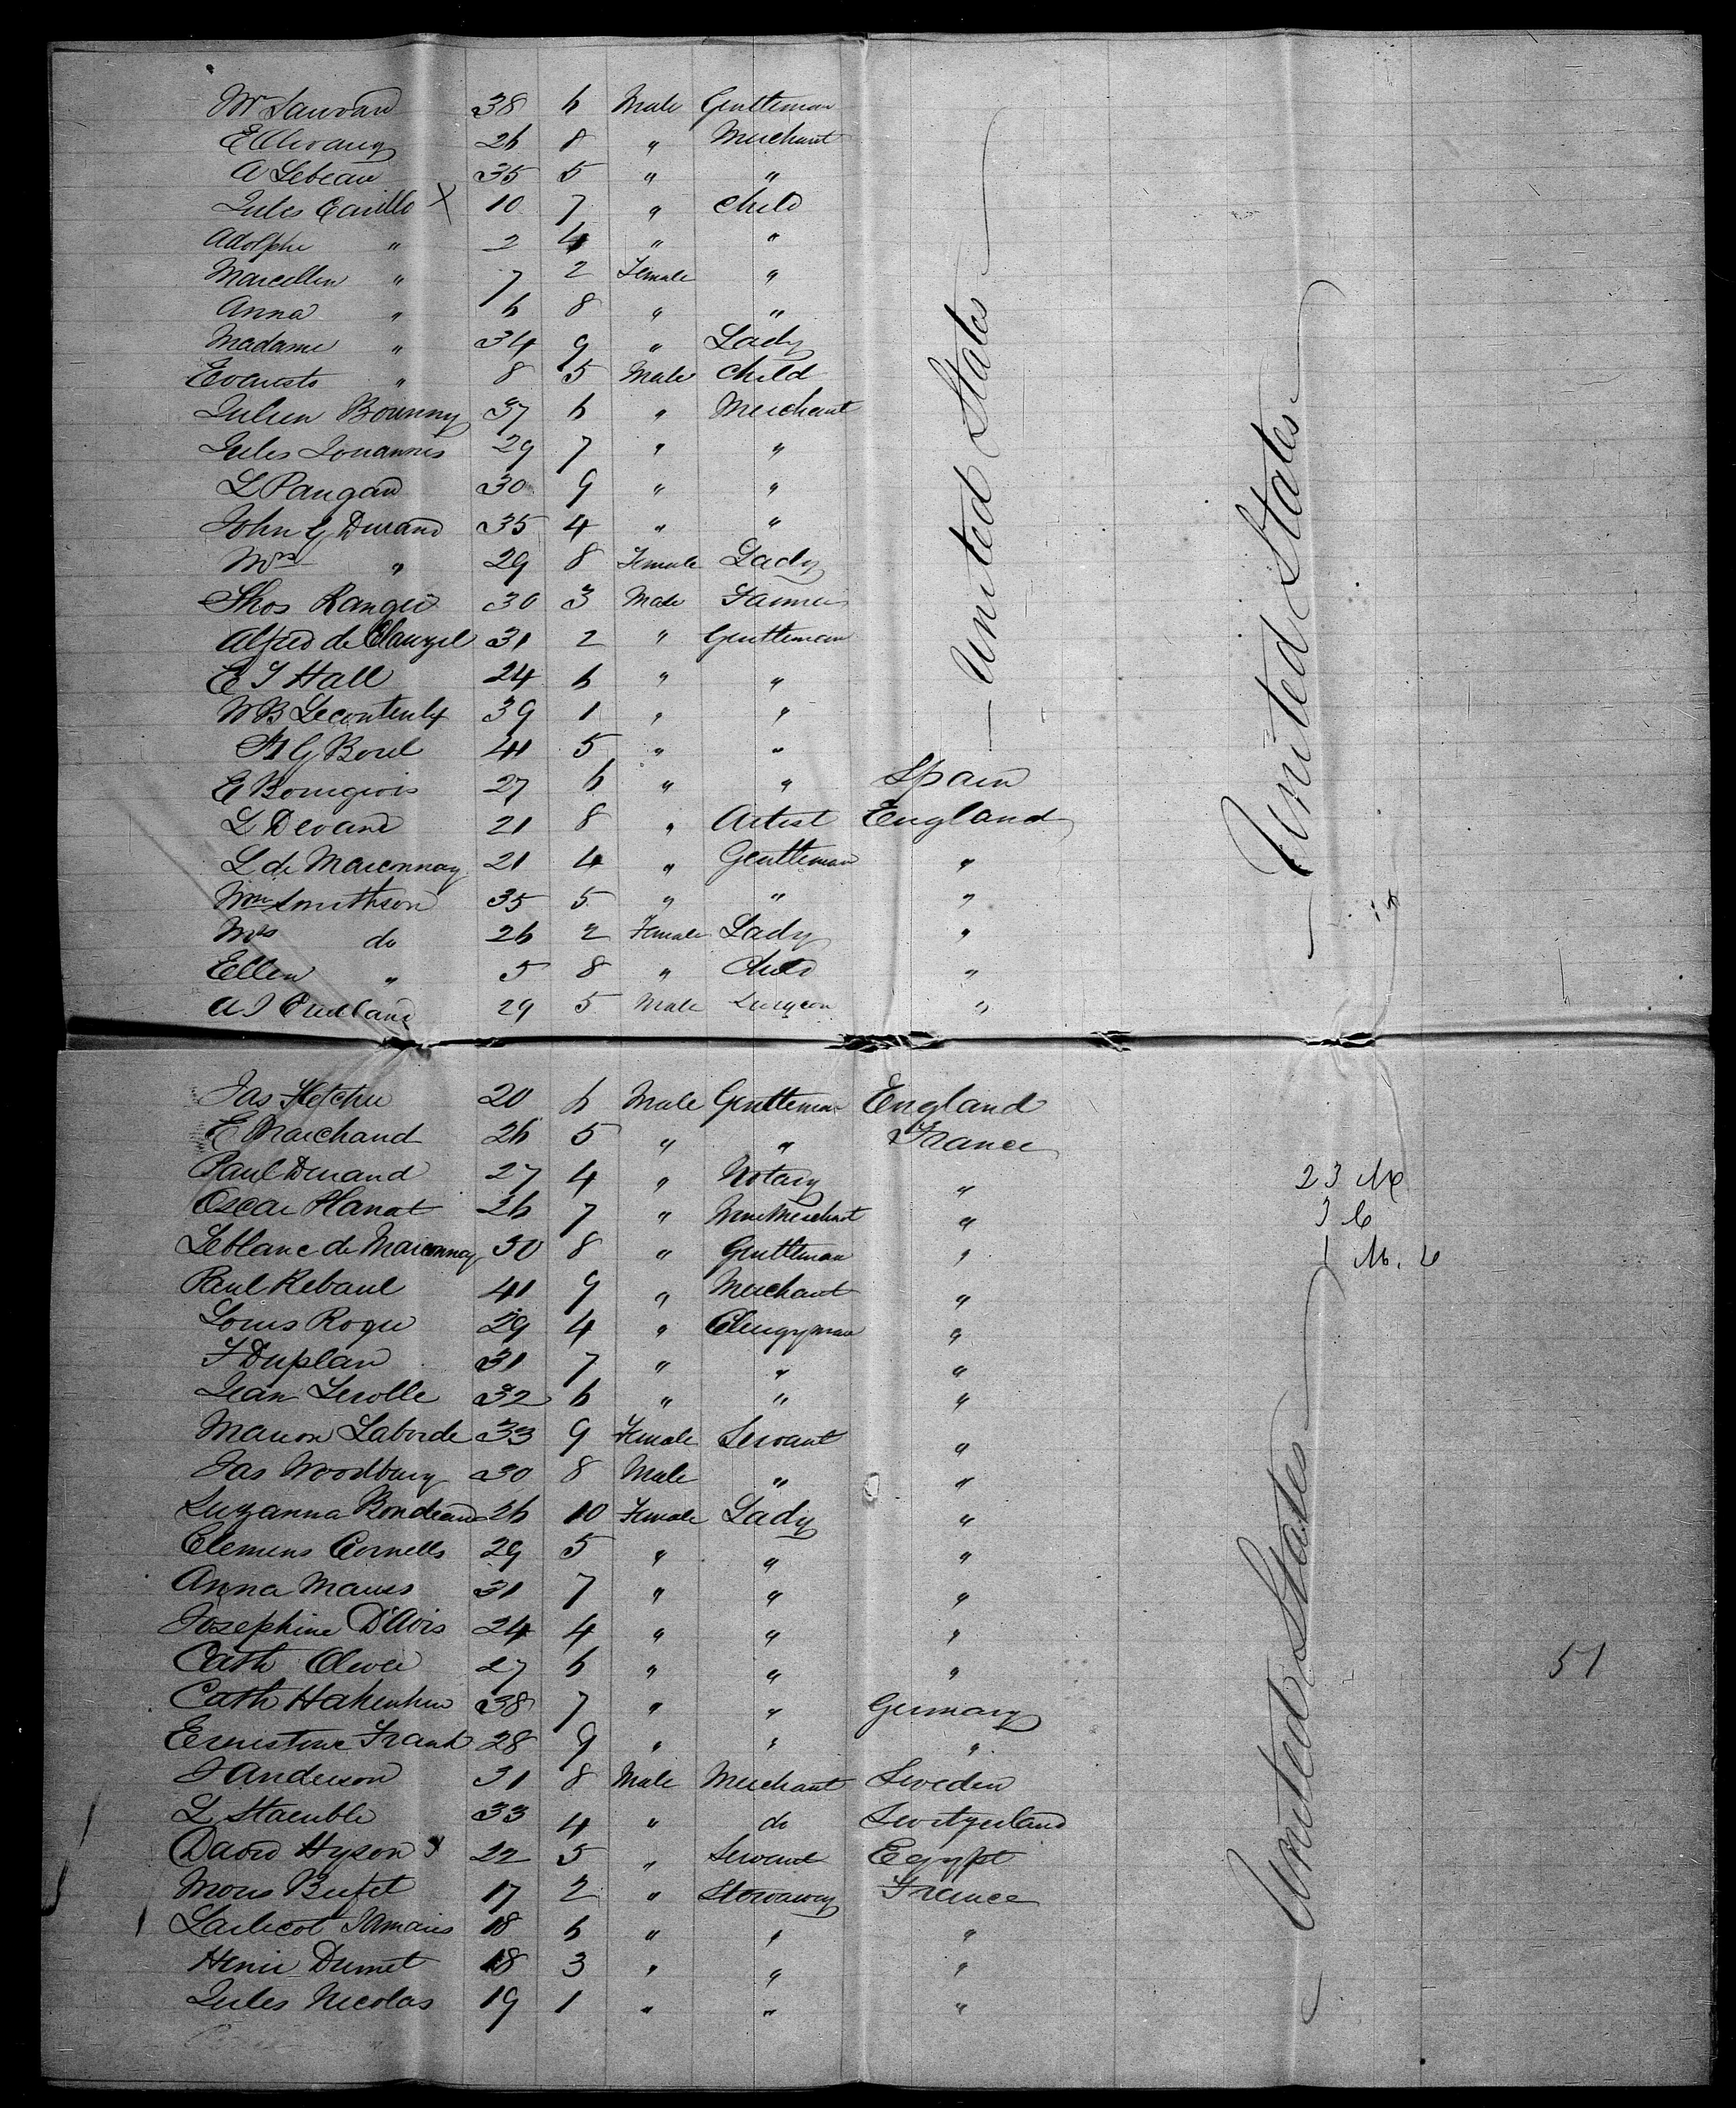 Mr Sauvan 38 6 Male Gentleman
E 26 8 " Merchant
A Lebeau 35 5 " "
Jules Carillo X 10 7 " Child
Adolphe " 2 4 " "
Marcellin " 7 2 Female "
Anna " 6 8 " "
Madame " 34 9 " Lady
Evaristo " 8 5 Male Child
Julien Bounny 37 6 " Merchant
Jules Jouannis 29 7 " "
L Paugan 30 9 " "
John G Durand 35 4 " "
Mrs " 29 8 Female Lady
Thos Ranger 30 3 Male Farmer
Alfred de Clauzel 31 2 " Gentleman
E J Hall 24 6 " "
W B Lecouteulx 39 1 " "
A G Borel 41 5 " "
United States
E Bourgiois 27 6 " " Spain
L Devane 21 8 " Artist England
L de Marconnay 21 4 " Gentleman "
Wm Smithson 35 5 " " "
Mrs do 26 2 Female Lady "
Ellen " 5 8 " Child "
A J 29 5 Male Surgeon "
United States
Jas Fletcher 20 6 Male Gentleman England
E Marchand 26 5 " " France
Paul Durand 27 4 " Notary " 23 M
Oscar Hanot 26 7 " Wine Merchant " 3 C
Leblanc de Marconnay 30 8 " Gentleman " 1 M. U
Paul Rebaul 41 9 " Merchant "
Louis Roque 29 4 " Clergyman "
F Duplan 31 7 " " "
Jean Lerolle 32 6 " " "
Marion Laborde 33 9 Female Servant "
Jas Woodbury 30 8 Male " "
Suzanna Rondeau 26 10 Female Lady "
Clemens Cornells 29 5 " " "
Anna Mauss 31 7 " " "
Josephine D'Avis 24 4 " " "
Cath Oliver 27 6 " " " 51
Cath 38 7 " " Germany
Ernestine Frank 28 9 " " "
J Anderson 31 8 Male Merchant Sweden
L Staemble 33 4 " do Switzerland
David Hyson X 22 5 " Servant Egypt
Mons Bufet 17 2 " Stowaway France
Jamais 18 6 " " "
Henri Dumet 18 3 " " "
Jules Nicolas 19 1 " " "
United States